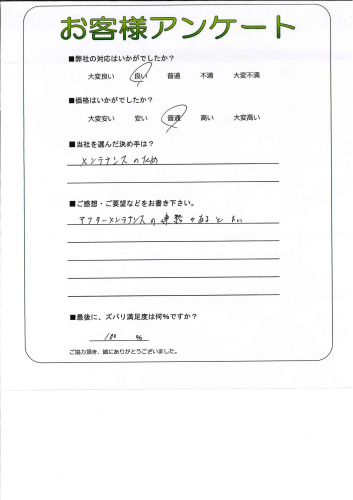 お客様アンケート
■弊社の対応はいかがでしたか?
大変良い 良い 普通 不満 大変不満
■価格はいかがでしたか?
大変安い 安い 普通 高い 大変高い
■当社を選んだ決め手は?
メンテナンスのため
■ご感想・ご要望などをお書き下さい。
アフターメンテナンスの連絡があると
■最後に、ズバリ満足度は何%ですか?
100 %
ご協力頂き、誠にありがとうございました。